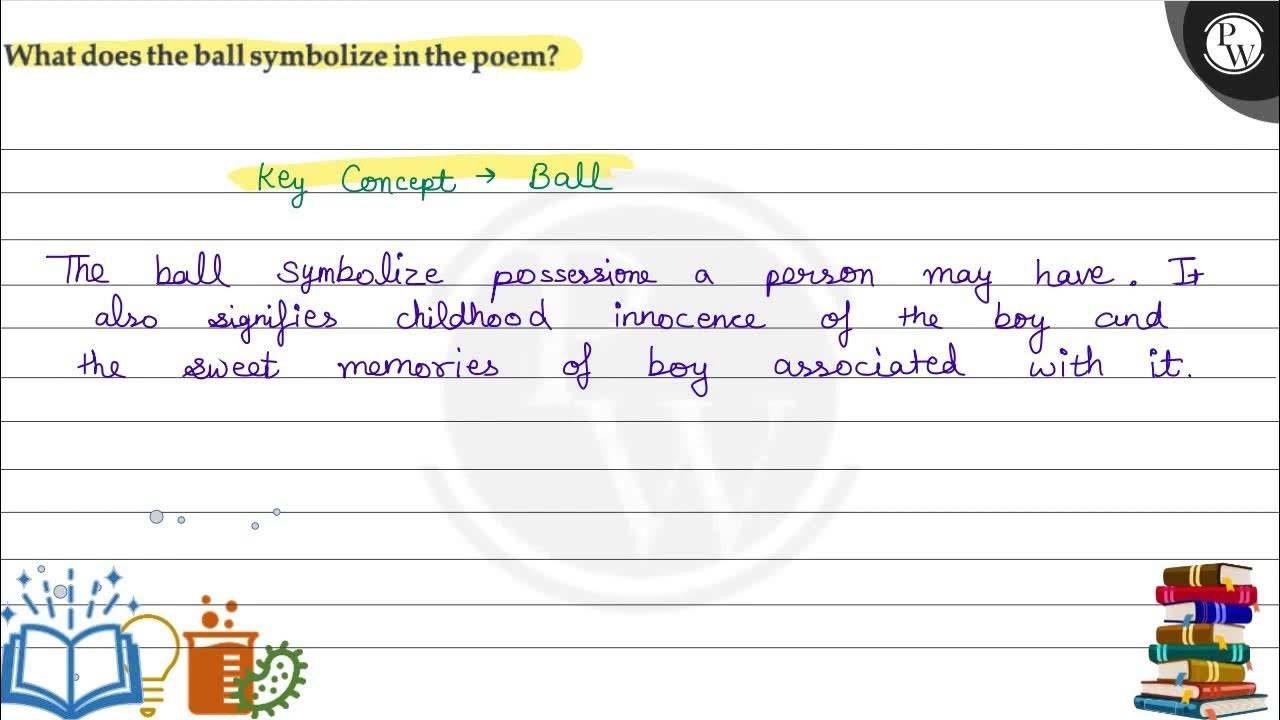 What does the ball symbolize in the poem?
PW
Key Concept → Ball
The ball symbolize possessione a person may have. It
also signifies childhood innocence of the boy and
the sweet memories of boy associated with it.
PW